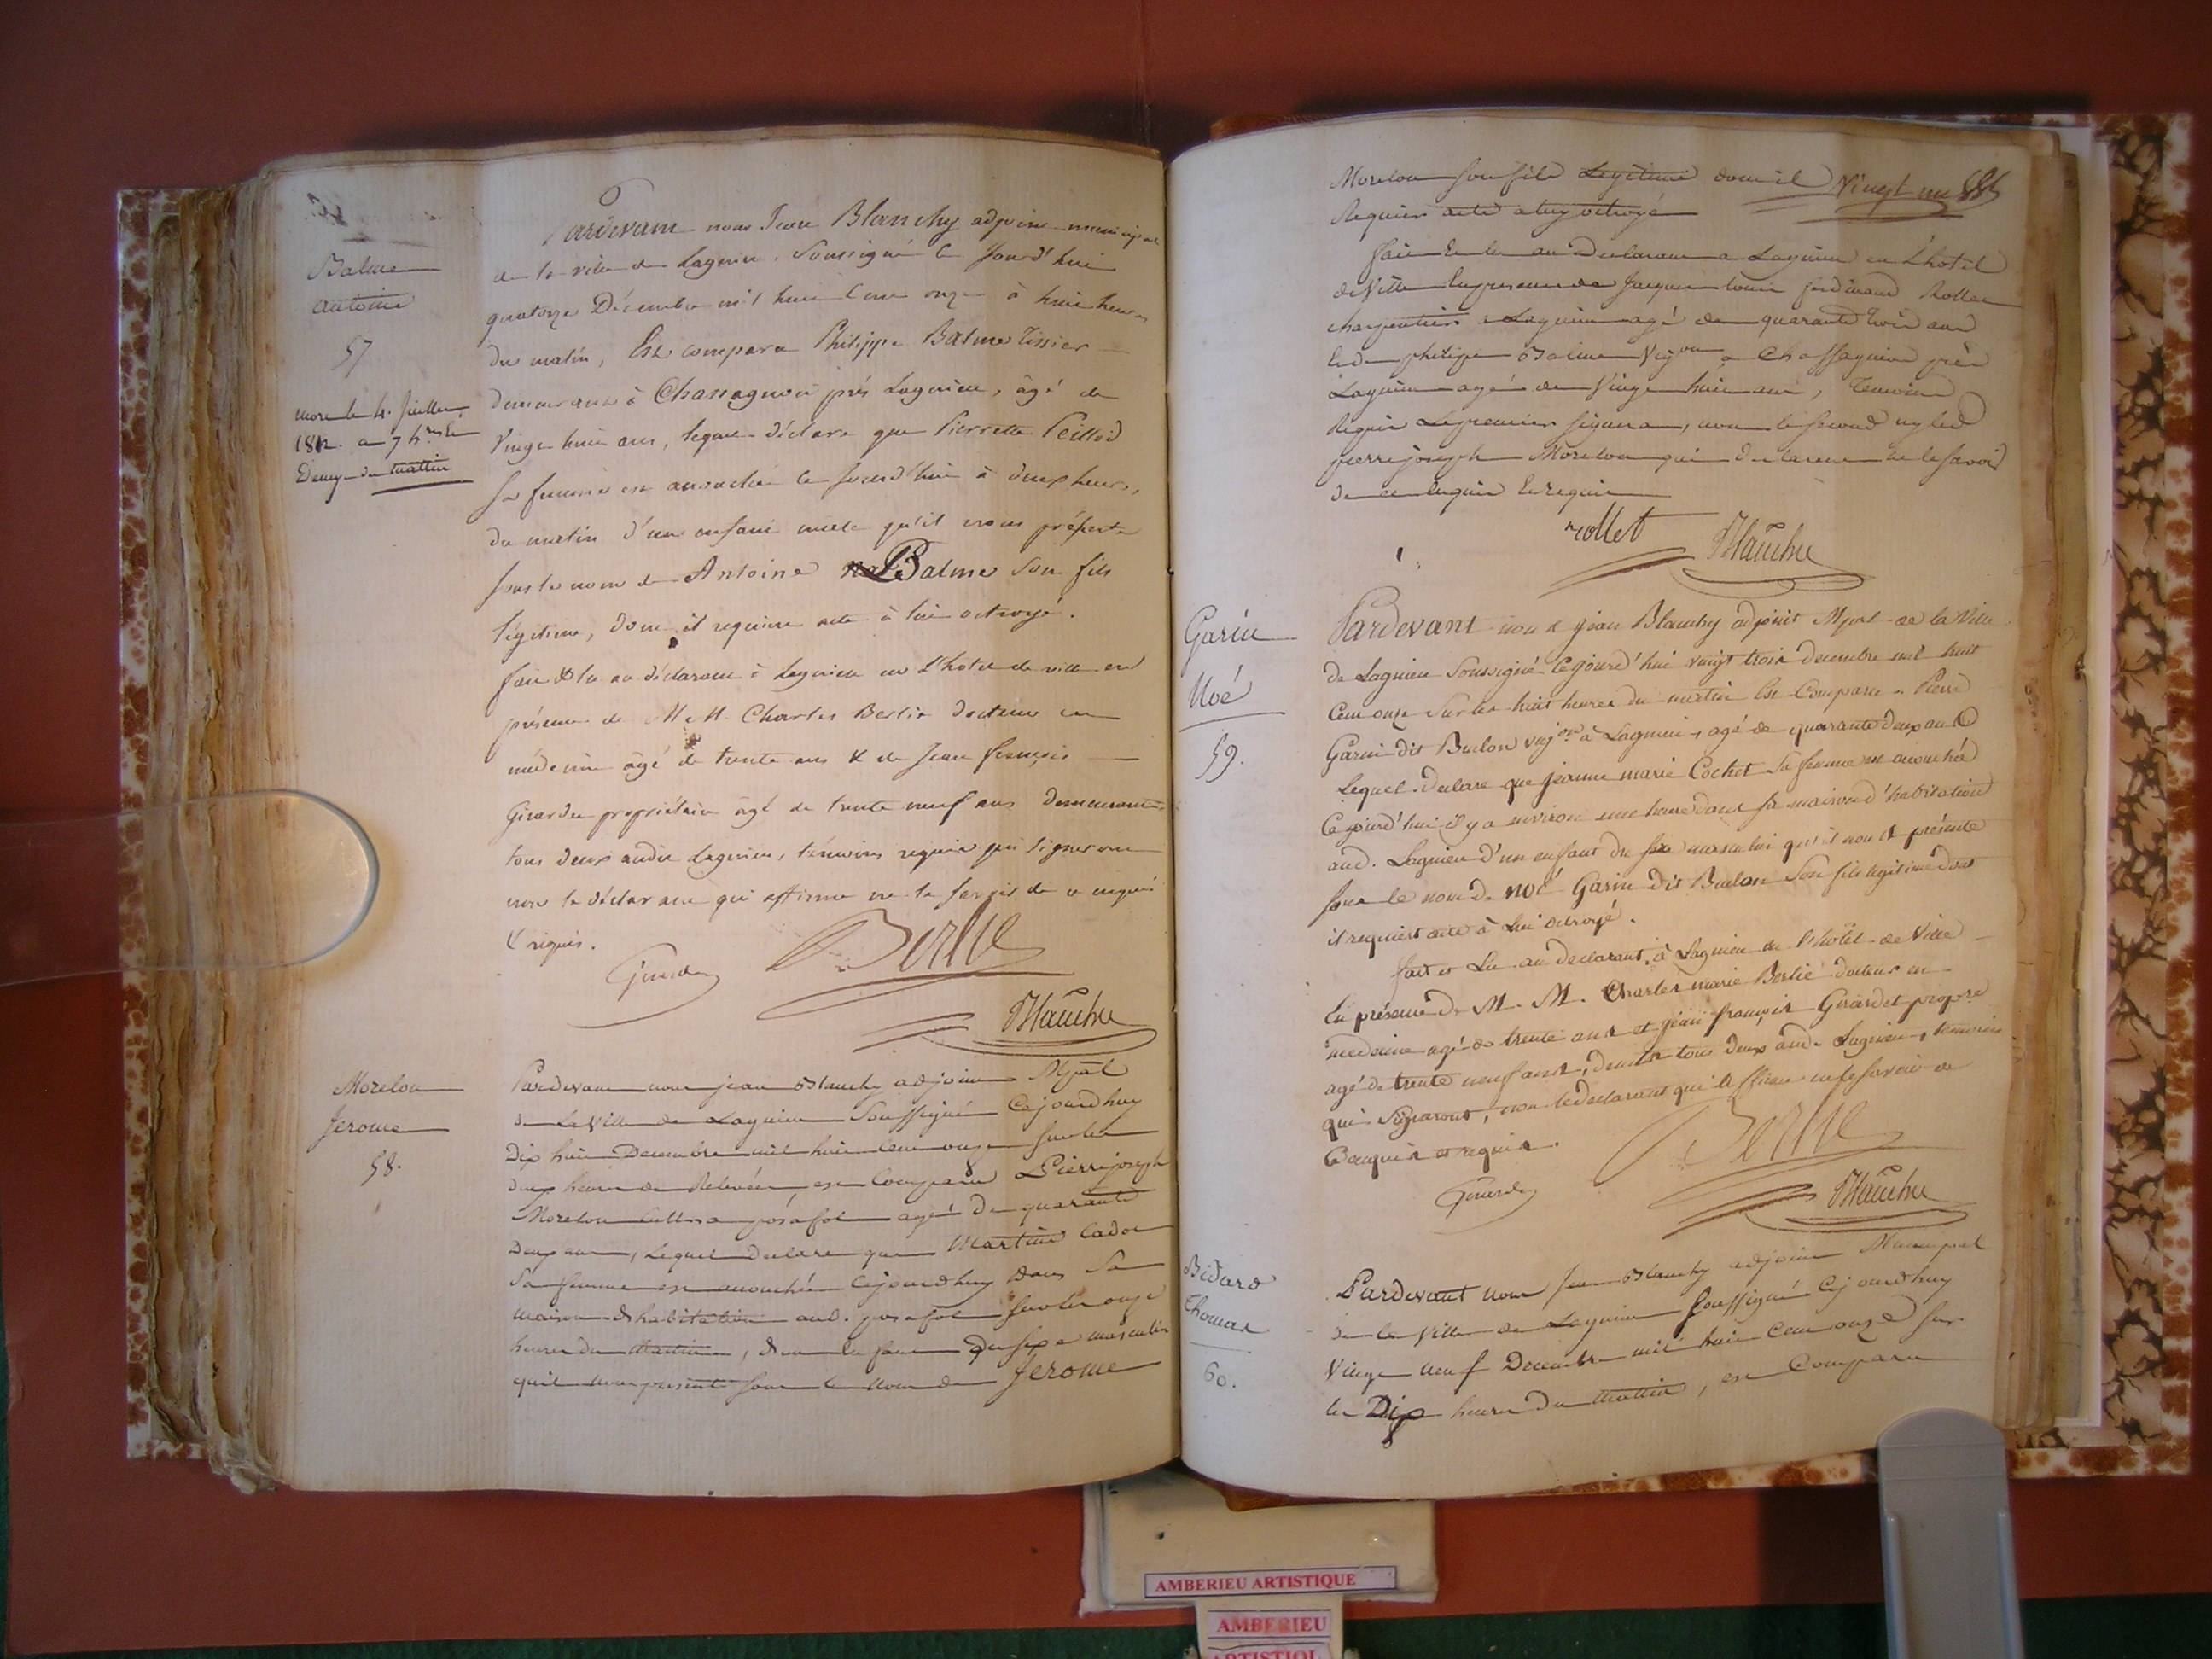 Balme
antoine
57
mort le 4. Juillet
1812. a 7 h.res &
Demy du mattin
Pardevant nous Jean Blanchy adjoint municipal
de la ville de Lagnieu, soussigné ce Jourd'hui
quatorze Décembre mil huit cent onze à huit heures
du matin, Est comparu Philippe Balme Tissier
demeurant à Chanagnieu près Lagnieu, âgé de
vingt huit ans, lequel déclare que Pierrette Peillod
sa femme est accouchée ce jourd'hui à deux heures,
du matin d'un enfant mâle qu'il nous présente
sous le nom de Antoine Balme son fils
légitime, dont il requiere acte à lui octroyé.
fait & lu au déclarant à Lagnieu en L'hotel de ville en
présence de M M. Charles Berlie docteur en
médecine âgé de trente ans & de Jean françois
Girardet propriétaire âgé de trente neuf ans demeurants
tous deux audit Lagnieu, témoins requis qui signeront
non le déclarant qui affirme ne le savoir de ce enquis
& requis.
Girardet Berlie
Blanchy
Morelon
Jerome
58.
Pardevant nous jean Blanchy adjoint Mpal
de La Ville de Lagnieu Soussigné Cejourdhuy
Dix huit Decembre mil huit cent onze sur les
deux heures de Relevées, est Comparu Pierre joseph
Morelon a posafol agé de quarante
Deux ans, Lequel declare que Martine Cador
Sa femme est accouchée Cejourdhuy dans Sa
maison dhabitation aud. posafol sur les onze
heures du Mattin, d'un Enfant du sexe masculin
quil nous presente sous le nom de Jerome
Morelon son fils Legitime dont il Vingt un
Requier acte a luy octroyé
fait et lu au Declarant a Lagnieu en L'hotel
de Ville En presence de Jacques louis ferdinand Rollet
charpentier a Lagnieu agé de quarante trois ans
Et de philipe Balme Vig.on a Chassagnieu près
Lagnieu agé de Vingt huit ans, Temoins
Requis Le premier signera, non le second ny led
pierre joseph Morelon qui declarent ne le savoir
de ce Enquis Et requis
rollet Blanchy
Garin
Noé
59.
Pardevant nous jean Blanchy adjoint Mpal de la Ville
de Lagnieu Soussigné Cejourd'hui vingt trois decembre mil huit
Cent onze Sur les huit heures du matin Est Comparu Pierre
Garin dit Budon vig.on à Lagnieu, agé de quarante deux ans
Lequel Déclare que jeanne marie Cochet Sa femme est accouchée
Cejourd'hui il y a environ une heure dans sa maison d'habitation
aud. Lagnieu d'un enfant du sexe masculin qu'il nous présente
sous le nom de Noé Garin dit Budon Son fils legitime dont
il requiert acte à Lui octroyé.
fait et Lu au declarant, à Lagnieu en l'hôtel de Ville
En présence de M. M. Charles marie Berlié docteur en
medecine agé de trente ans et jean françois Girardet propre
agé de trente neuf ans, demt tous deux aud. Lagnieu, temoins
qui Signeront, non le declarant qui affirme ne le savoir de
Ce enquis et requis.
Girardet Berlie
Blanchy
Bidard
Thomas
60.
Pardevant nous Jean Blanchy adjoint Municipal
de la Ville de Lagnieu soussigné Cejourdhuy
Vingt neuf Decembre mil huit Cent onze sur
les Dix heures du Mattin, est Comparu
AMBERIEU ARTISTIQUE
AMBERIEU
ARTISTIQU